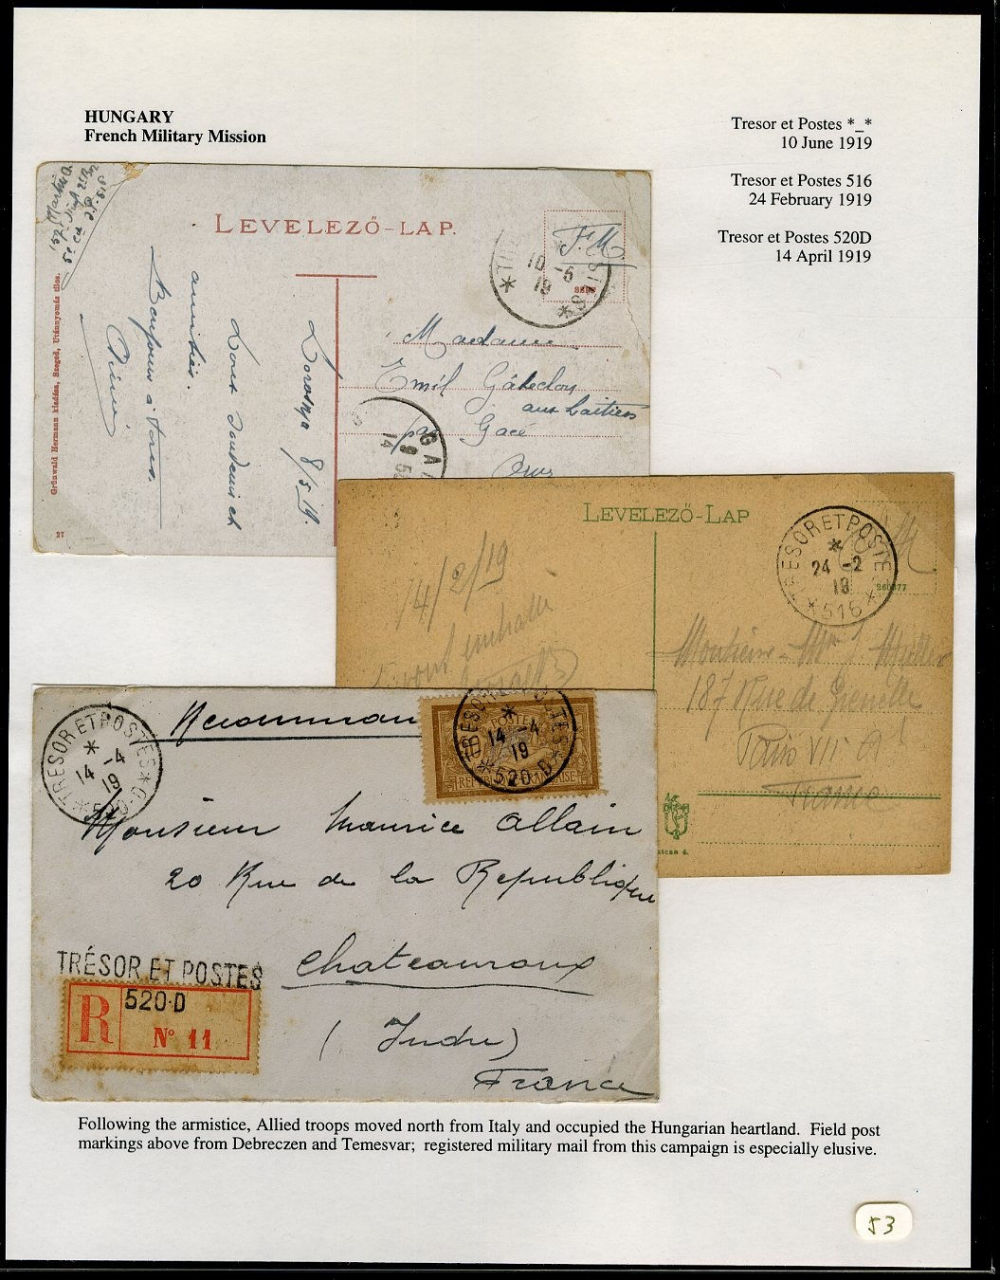 HUNGARY
French Military Mission
Tresor et Postes *_*
10 June 1919
Tresor et Postes 516
24 February 1919
Tresor et Postes 520D
14 April 1919
LEVELEZŐ-LAP.
F.M.
10 -6
19
Madame
Emil
aux Laitiers
par Gacé
Orne
GA
14
8/5 19.
amitiés.
Grünwald Hermann kiadása, Szeged, Utánnyomás tilos.
27
LEVELEZŐ-LAP
TRESOR ET POSTES
24 -2
19
*516*
14/2/19
Monsieur
187 Rue de Grenelle
Paris VII
France
Recomman
TRESOR ET POSTES
14 -4
19
POSTES
14 -4
19
*520 D*
REPUBLIQUE FRANÇAISE
Monsieur Maurice Allain
20 Rue de la Republique
Chateauroux
(Indre)
France
TRÉSOR ET POSTES
520·D
R
N° 11
Following the armistice, Allied troops moved north from Italy and occupied the Hungarian heartland. Field post
markings above from Debreczen and Temesvar; registered military mail from this campaign is especially elusive.
53